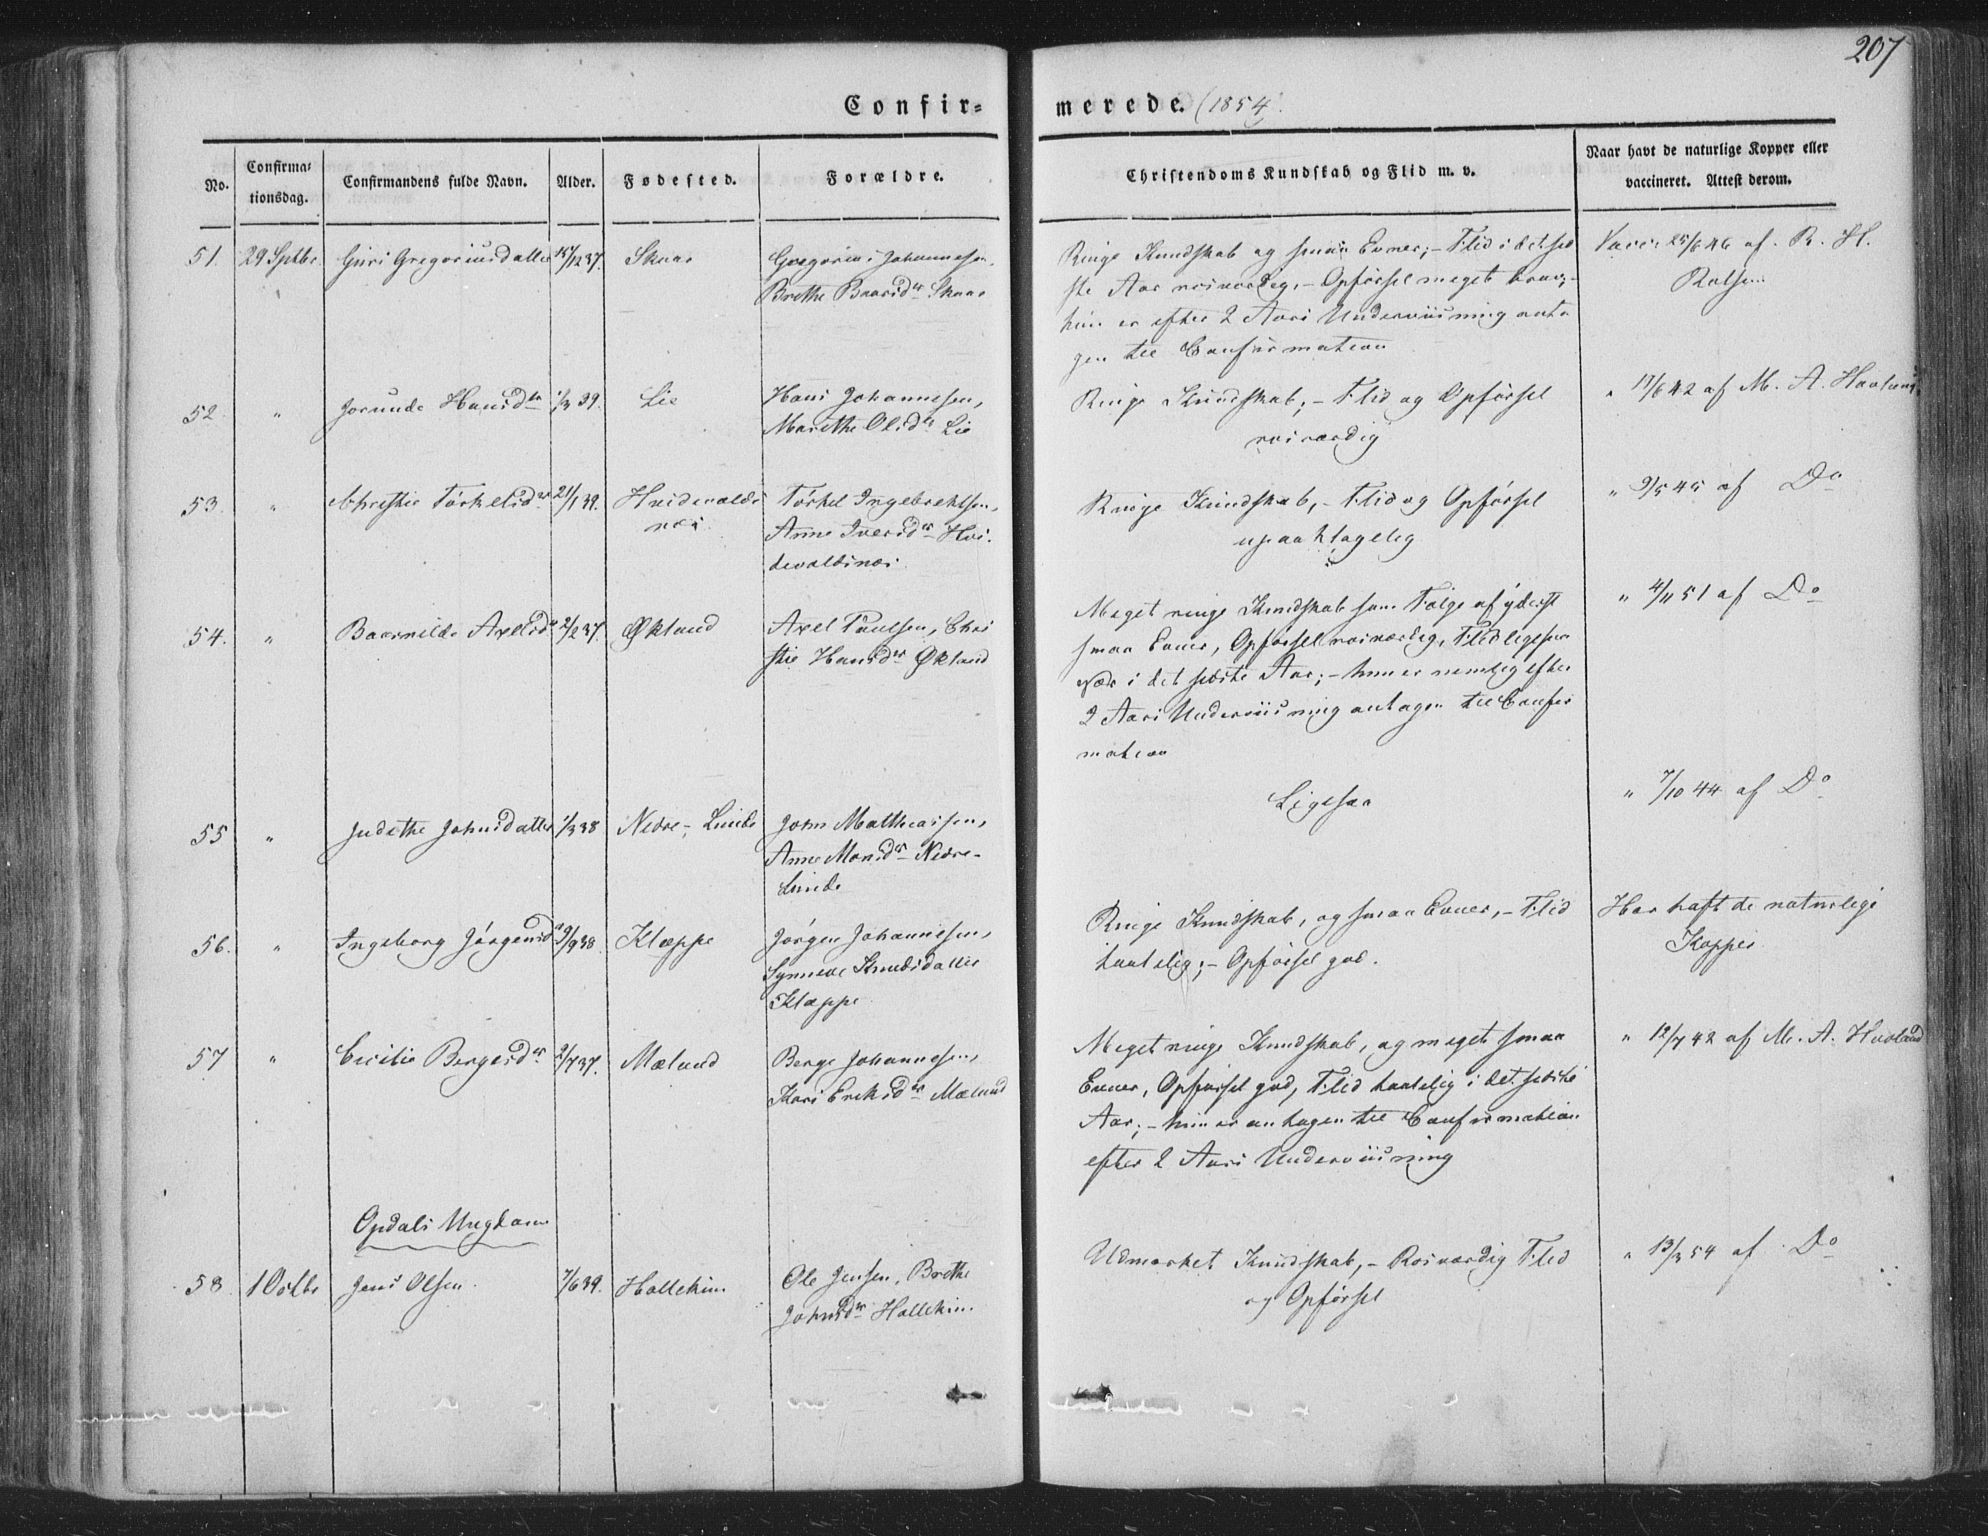 207
Confir-
merede. (1854)
No.
Confirma-
tionsdag.
Confirmandens fulde Navn.
Alder.
Fødested.
Forældre.
Christendoms Kundskab og Flid m. v.
Naar havt de naturlige Kopper eller
vaccineret. Attest derom.
51. 29 Septbr. Guri Gregoriusdatter 15/12 37. Skaar Gregorius Johannessen,
Brethe Baarsdr Skaar
Ringe Kundskab og smaa Evner; - Flid i det sid
ste Aar rosværdig, - Opførsel meget brav; -
hun er efter 2 Aars Underviisning anta
gen til Confirmation
Vacc: 25/6 46 af R. H.
Rolfsen
52. " Jorunde Hansdr 1/3 39. Lie Hans Johannessen,
Marethe Olsdr Lie
Ringe Kundskab; - Flid og Opførsel
rosværdig
" 17/6 42 af M. A. Havland
53. " Christie Tørkelsdr 21/1 39. Hvidevolds
næs.
Tørkel Ingebrektsen,
Anne Iversdr Hvi-
devoldsnæs.
Ringe Kundskab, - Flid og Opførsel
upaaklagelig
" 9/5 45 af Do
54. " Baarnilde Axelsdr 2/2 37. Økland Axel Paulsen, Chri
stie Hansdr Økland
Meget ringe Kundskab som Følge af yderst
smaa Evner, Opførsel rosværdig, Flid ligesaa
i det sidste Aar; - hun er nemlig efter
2 Aars Underviisning antagen til Confir
mation
" 4/11 51 af Do
55 " Judithe Johnsdatter 1/3 38 Nedre-Linde John Mathiassen,
Anne Monsdr Nedre-
Linde
Ligesaa
" 7/10 44 af Do
56. " Ingeborg Jørgensdr 9/9 38. Klæppe Jørgen Johannessen,
Synneve Knudsdatter
Klæppe
Ringe Kundskab, og smaa Evner, - Flid
taalelig; - Opførsel god.
Har haft de naturlige
Kopper
57 " Cicilie Bergesdr 2/7 37. Mæland Berge Johannessen,
Kari Eriksdr Mæland
Meget ringe Kundskab, og meget smaa
Evner, Opførsel god, Flid taalelig i det sidste
Aar; - hun er antagen til Confirmation
efter 2 Aars Underviisning
" 12/7 42 af M. A. Havland
Opdals Ungdom
58. 1 Octbr Jens Olsen. 7/6 39. Hallekim Ole Jensen, Brethe
Johnsdr Hallekim.
Udmærket Kundskab, - Rosværdig Flid
og Opførsel
" 13/3 54 af Do